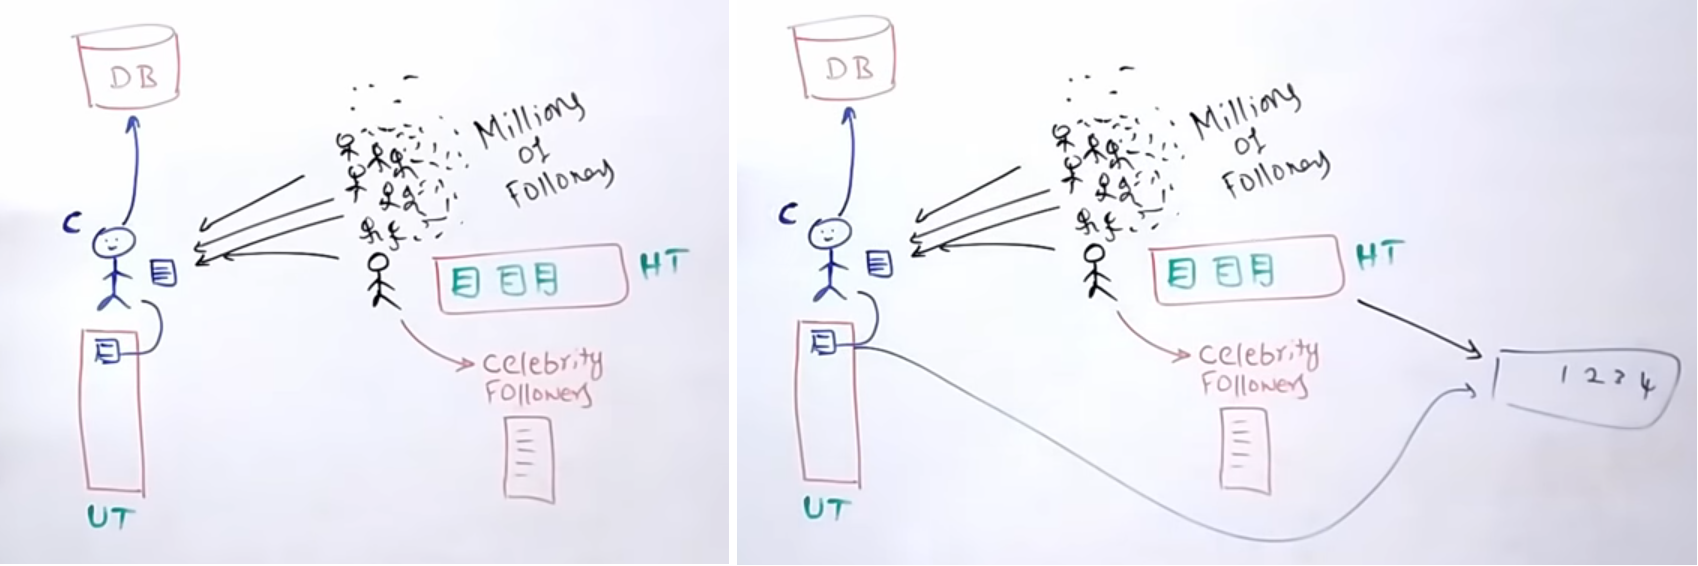 DB
Millions
of
Followers
C
HT
Celebrity
Followers
UT
DB
Millions
of
Followers
C
HT
1 2 3 4
Celebrity
Followers
UT